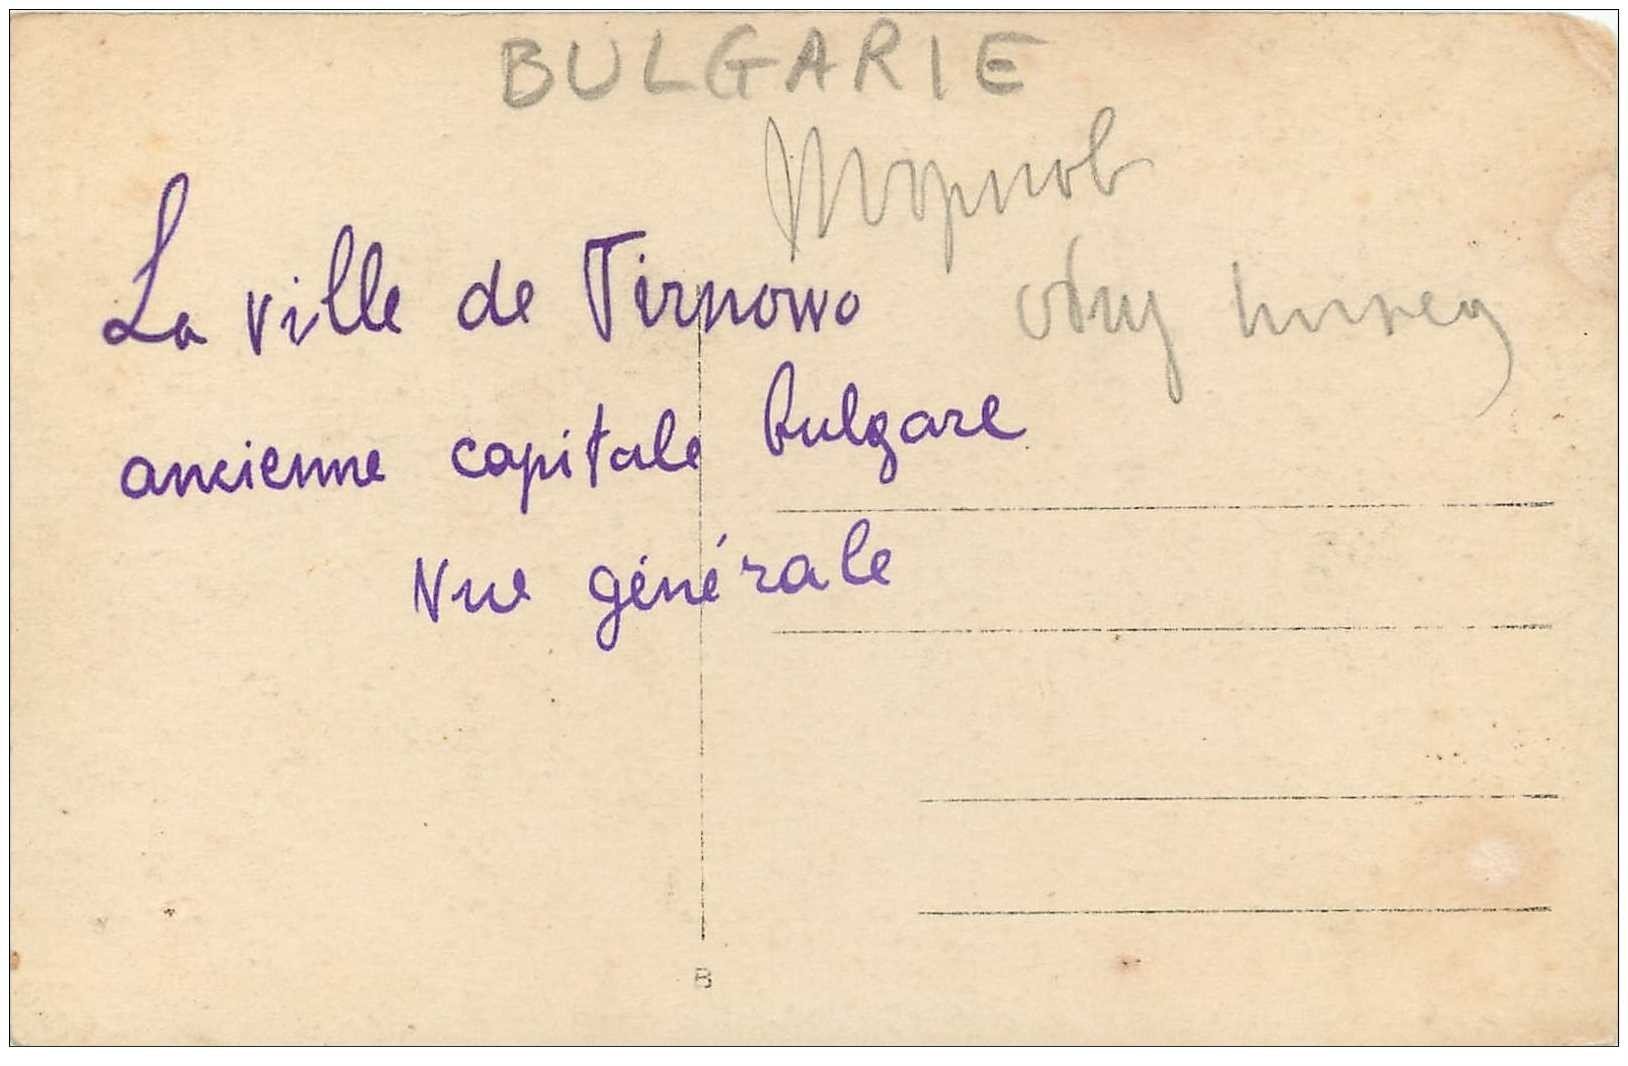 BULGARIE
Търнов
La ville de Tirnowo
общ изглед
ancienne capitale bulgare
Vue générale
B